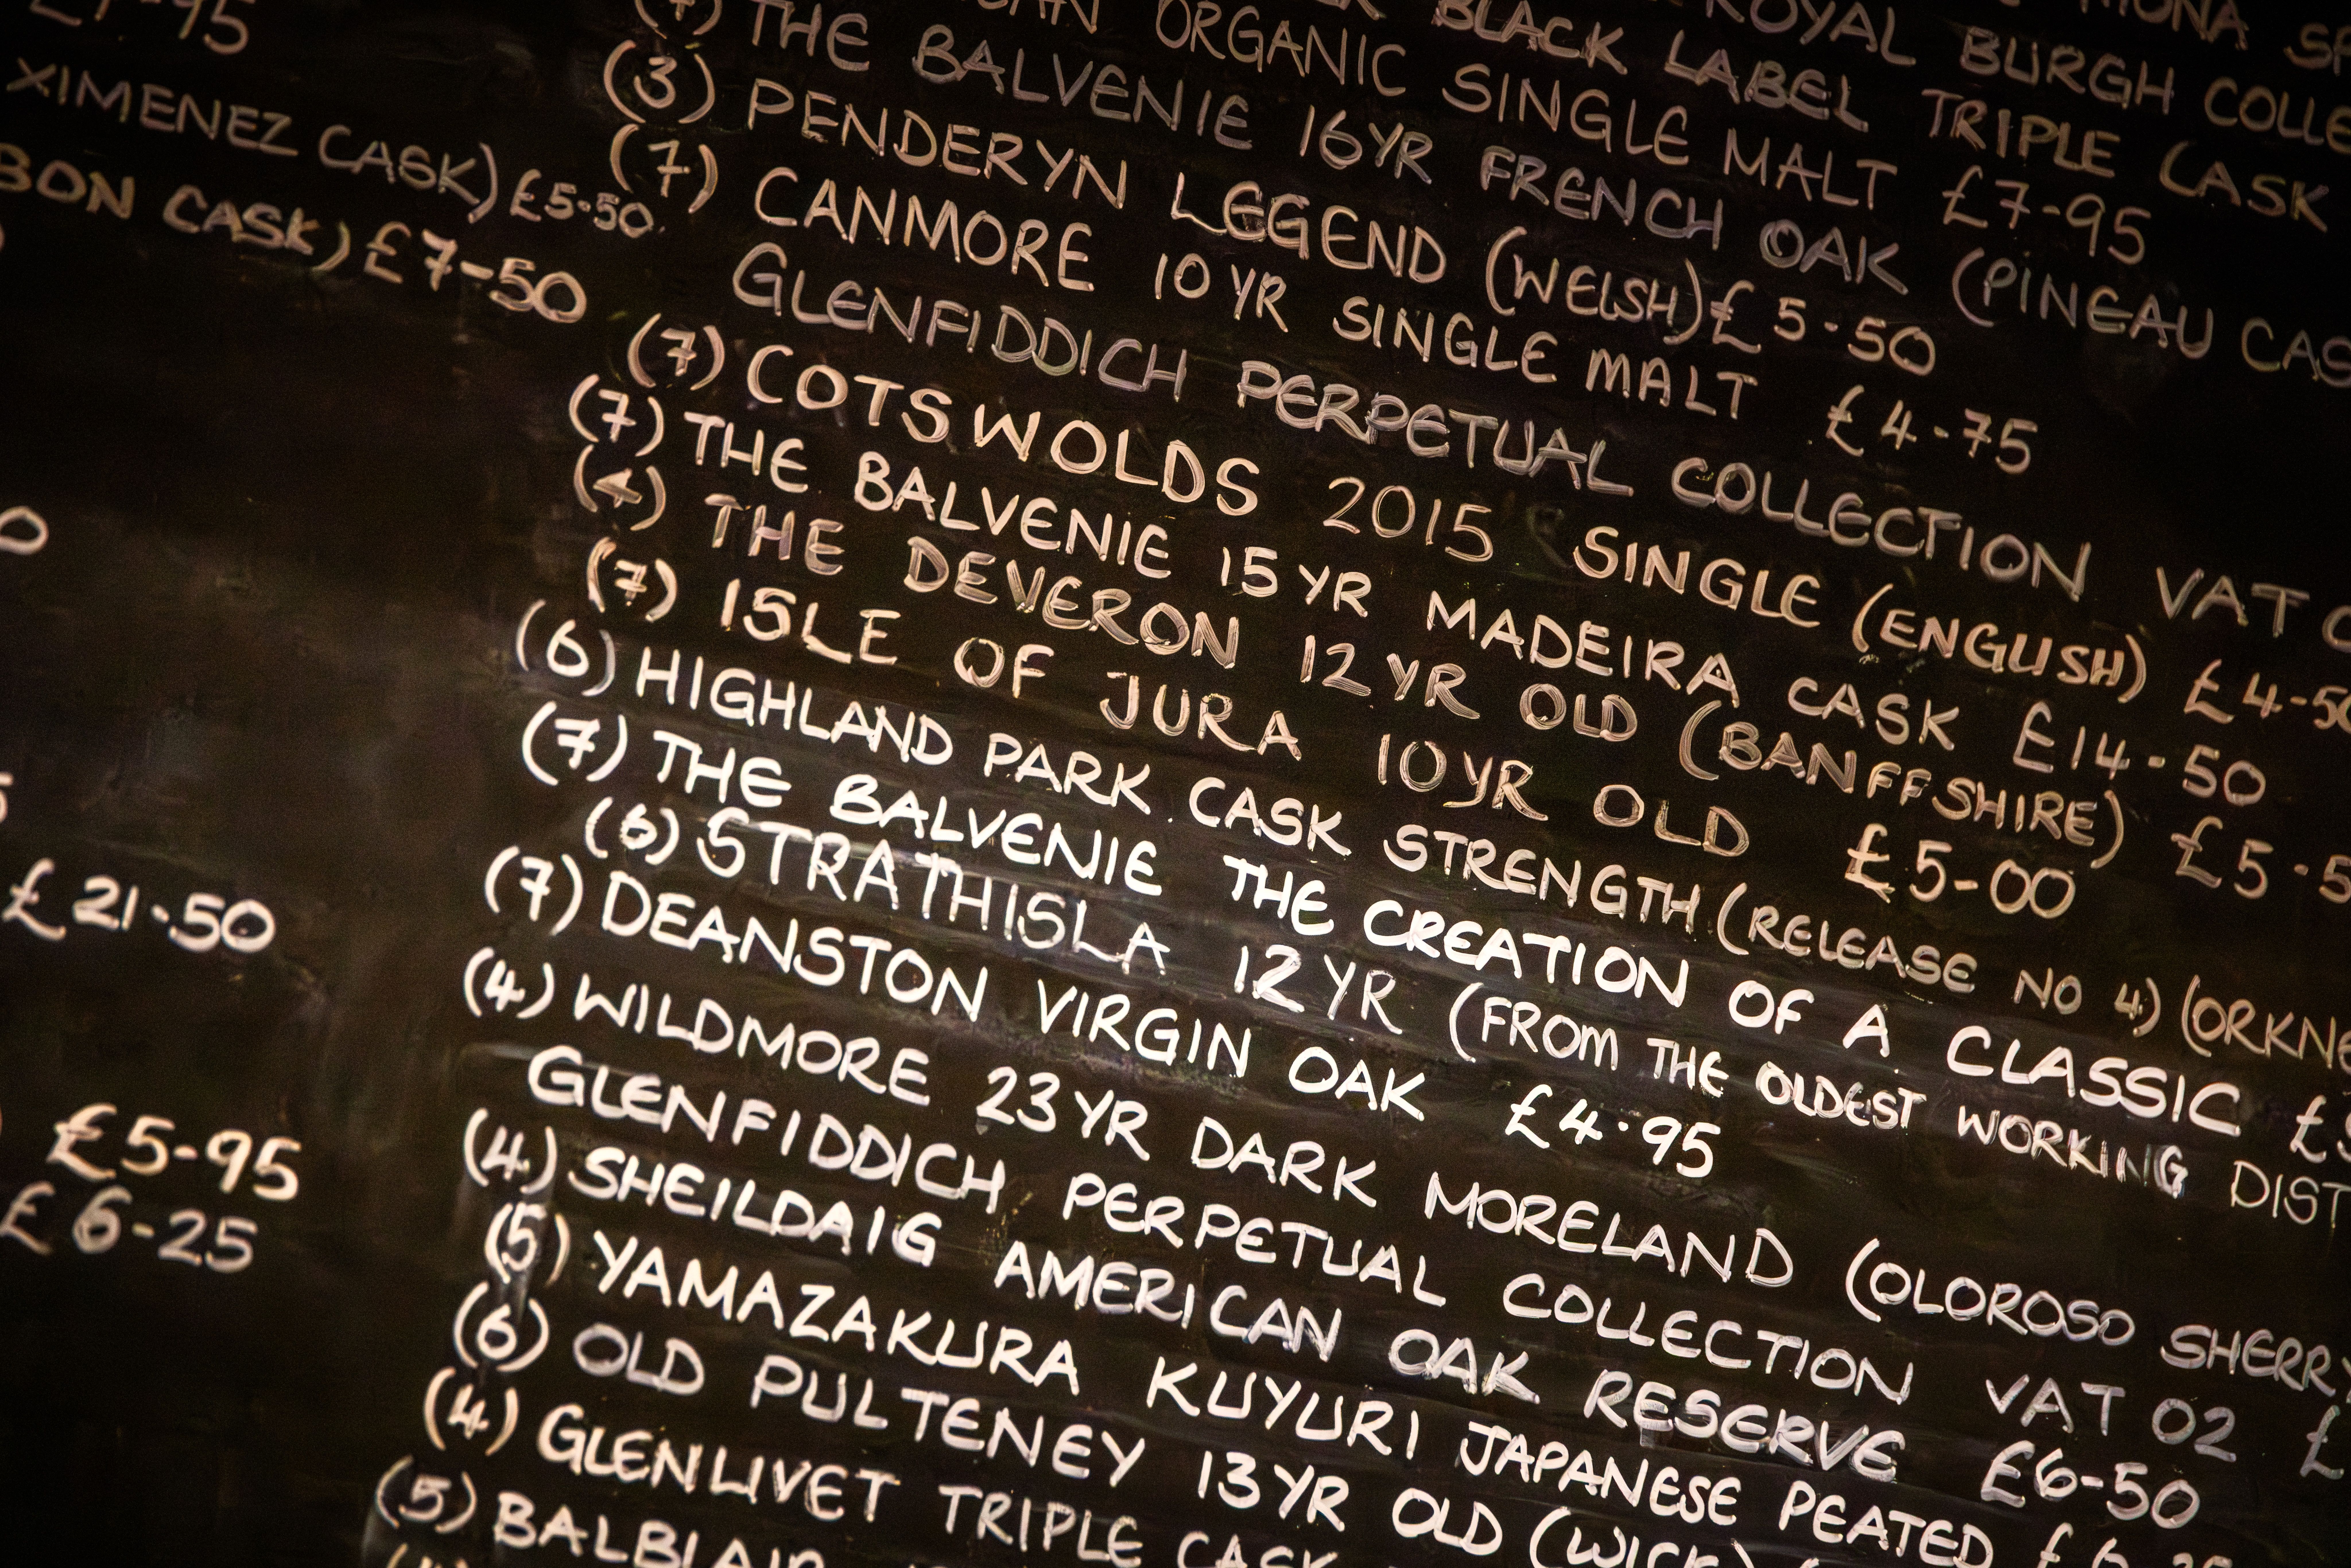 MONA
ROYAL BURGH COLLE
BLACK LABEL TRIPLE CASK
ORGANIC SINGLE MALT £7-95
THE BALVENIE 16YR FRENCH OAK (PINEAU CAS
(3) PENDERYN LEGEND (WELSH) £5-50
(7) CANMORE 10YR SINGLE MALT £4-75
GLENFIDDICH PERPETUAL COLLECTION VAT
(7) COTSWOLDS 2015 SINGLE (ENGLISH) £4-50
(7) THE BALVENIE 15YR MADEIRA CASK £14-50
(4) THE DEVERON 12YR OLD (BANFFSHIRE) £5-5
(7) ISLE OF JURA 10YR OLD £5-00
(6) HIGHLAND PARK CASK STRENGTH (RELEASE NO 4) (ORKNE
(7) THE BALVENIE THE CREATION OF A CLASSIC £
(6) STRATHISLA 12YR (FROM THE OLDEST WORKING DIST
(7) DEANSTON VIRGIN OAK £4-95
(4) WILDMORE 23YR DARK MORELAND (OLOROSO SHERRY
GLENFIDDICH PERPETUAL COLLECTION VAT 02 £
(4) SHEILDAIG AMERICAN OAK RESERVE £6-50
(5) YAMAZAKURA KUYURI JAPANESE PEATED
(6) OLD PULTENEY 13YR OLD (WICK)
(4) GLENLIVET TRIPLE CASK
(5) BALBLAIR
XIMENEZ CASK) £5-50
BON CASK) £7-50
£21-50
£5-95
£6-25